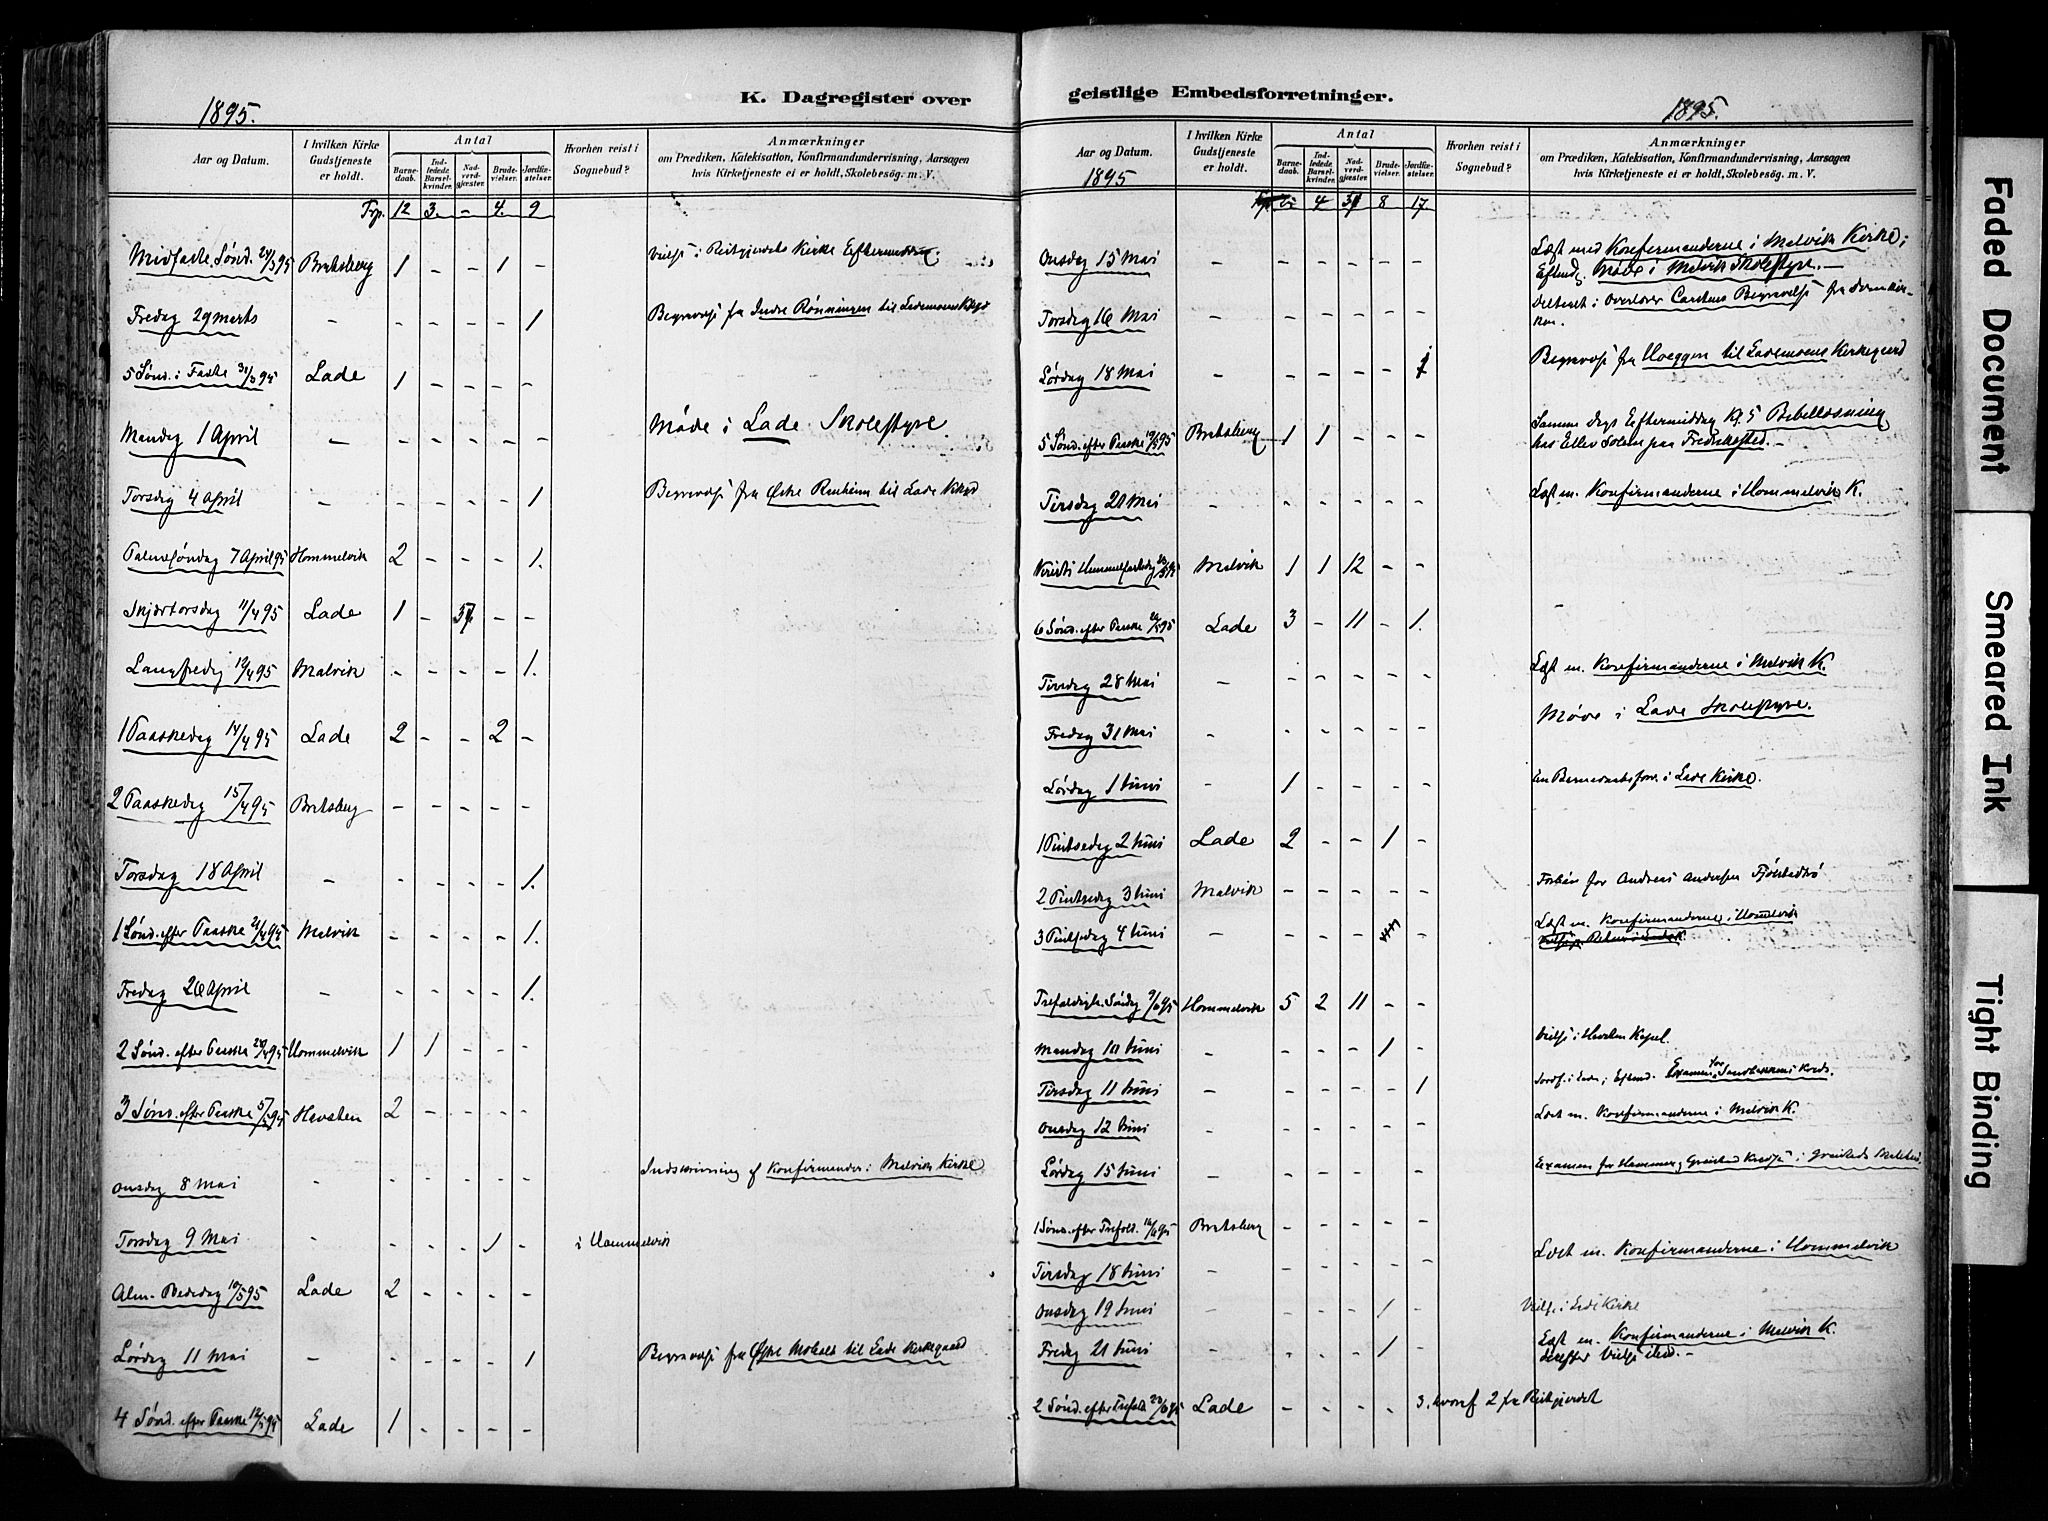 1895.
K. Dagregister over
Aar og Datum.
I hvilken Kirke Gudstjeneste er holdt.
Antal
Barnedaab.
Indledede Barselkvinder.
Nadverdgjester.
Brudevielser.
Jordfæstelser.
Hvorhen reist i Sognebud?
Anmærkninger
om Prædiken, Katekisation, Konfirmandundervisning, Aarsagen
hvis Kirketjeneste ei er holdt, Skolebesøg. m. V.
Frp. 12 3. - 4. 9
Midfaste Sønd. 24/3 95 Bratsberg 1 - - 1 - Kirke Efterm.
Fredag 29 Marts - - - - - 1 Begravelse fra Indre Rønningen til Lademoens Kkgd
5 Sønd. i Faste 31/3 95 Lade 1 - - - -
Mandag 1 April - - - - - - Møde i Lade Skolestyre
Torsdag 4 April - - - - - 1 Begravelse fra Østre til Lade Kkgd
Palmesøndag 7 April 95 Hommelvik 2 - - - 1.
Skjærtorsdag 11/4 95 Lade 1 - - -
Langfredag 12/4 95 Malvik - - - - 1.
1 Paaskedag 14/4 95 Lade 2 - - 2 -
2 Paaskedag 15/4 95 Bratsberg - - - - -
Torsdag 18 April - - - - - 1.
1 Sønd. efter Paaske 21/4 95 Malvik - - - - 1.
Fredag 26 April - - - - - 1.
2 Sønd. efter Paaske 28/4 95 Hommelvik 1 1 - - -
3 Sønd. efter Paaske 5/5 95 Havsten 2 - - - -
Onsdag 8 Mai - - - - - - Indskrivning af Konfirmander i Malvik Kirke
Torsdag 9 Mai - - - - 1 - i Hommelvik
Alm. Bededag 10/5 95 Lade 2 - - - -
Lørdag 11 Mai - - - - - 1 Begravelse fra Østre til Lade Kirkegaard
4 Sønd. efter Paaske 12/5 95 Lade 1 - - - -
geistlige Embedsforretninger.
1895.
Aar og Datum.
1895
I hvilken Kirke Gudstjeneste er holdt.
Antal
Barnedaab.
Indledede Barselkvinder.
Nadverdgjester.
Brudevielser.
Jordfæstelser.
Hvorhen reist i Sognebud?
Anmærkninger
om Prædiken, Katekisation, Konfirmandundervisning, Aarsagen
hvis Kirketjeneste ei er holdt, Skolebesøg. m. V.
4 8 17.
Onsdag 15 Mai - - - - - Læst med Konfirmanderne i Malvik Kirke;
Eftmd. Møde i Malvik Skolestyre. -
Torsdag 16 Mai - - - - - - Deltaget i Overlærer Begravelse fra
Lørdag 18 Mai - - - - - 1 Begravelse fra Hoeggen til Lademoens Kirkegaard
5 Sønd. efter Paaske 19/5 95 Bratsberg 1 1 - - - Samme Dags Eftermiddag Kl. 5 Bibellæsning
hos paa
Tirsdag 21 Mai - - - - - - Læst m. Konfirmanderne i Hommelvik K.
Kristi Himmelfartsdag 23/5 95 Malvik 1 1 12 - -
6 Sønd. efter Paaske 26/5 95 Lade 3 - 11 - 1. -
Tirsdag 28 Mai - - - - - - Læst m. Konfirmanderne i Malvik K.
Fredag 31 Mai - - - - - - Møde i Lade Skolestyre.
Lørdag 1 Juni - 1 - - - - En Barnedaabsforr. i Lade Kirke.
1 Pintsedag 2 Juni Lade 2 - - 1 -
2 Pintsedag 3 Juni Malvik - - - - - Forbøn for Andreas Andersen
3 Pintsedag 4 Juni - - - - - Læst m. Konfirmanderne i Hommelvik
Trefoldigh. Søndag 9/6 95 Hommelvik 5 2 11 - -
Mandag 10 Juni - - - - 1 - Vielse i Havsten Kapel.
Tirsdag 11 Juni - - - - - 1 Jordf. i Lade; Eftmd. Examen for Kreds.
Onsdag 12 Juni - - - - - - Læst m. Konfirmanderne i Malvik K.
Lørdag 15 Juni - - - - - - Examen for Hammer og Kredse i
1 Sønd. efter Trefold. 16/6 95 Bratsberg - - - - -
Tirsdag 18 Juni - - - - - - Læst m. Konfirmanderne i Hommelvik
Onsdag 19 Juni - - - - 1 - Vielse i Lade Kirke
Fredag 21 Juni - - - - 1 - Læst m. Konfirmanderne i Malvik K.
derefter Vielse
2 Sønd. efter Trefold. 23/6 95 Lade - - - - 3. hvoraf 2 fra
Faded Document
Smeared Ink
Tight Binding